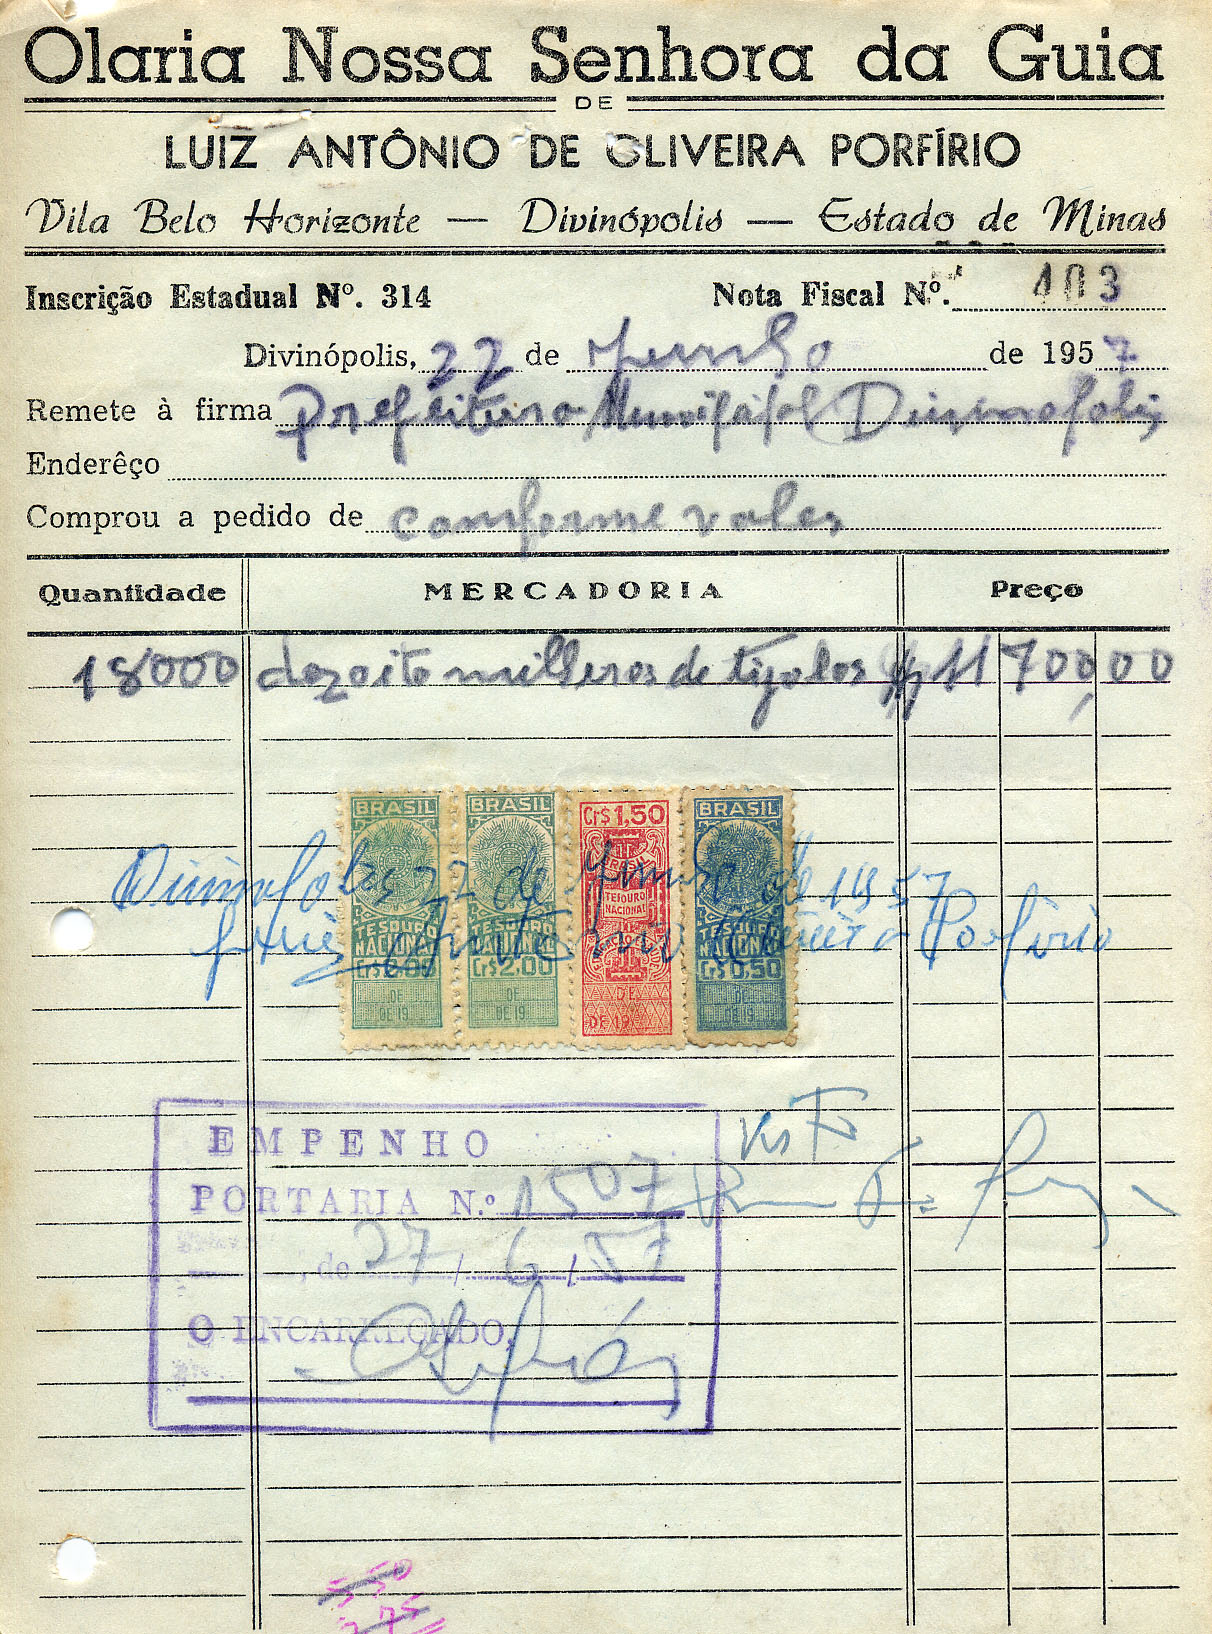 Olaria Nossa Senhora da Guia
DE
LUIZ ANTÔNIO DE OLIVEIRA PORFÍRIO
Vila Belo Horizonte — Divinópolis — Estado de Minas
Inscrição Estadual Nº. 314 Nota Fiscal Nº. 403
Divinópolis, 22 de Junho de 1957
Remete à firma Prefeitura Municipal Divinopolis
Enderêço
Comprou a pedido de comforme vales
Quantidade MERCADORIA Preço
18000 dezoito milheros de tijolos 11700,00
BRASIL BRASIL Cr$ 1,50 BRASIL
BRASIL
TESOURO NACIONAL
Divinopolis 22 de Junho de 1957
TESOURO NACIONAL TESOURO NACIONAL TESOURO NACIONAL
Luiz Antonio de Oliveira Porfirio
Cr$ 2,00 Cr$ 2,00 Cr$ 0,50
DE DE DE DE
DE 19 DE 19 DE 19 DE 19
EMPENHO
Visto
PORTARIA N.º 1507
, de 27 / 6 / 57
O ENCARREGADO,